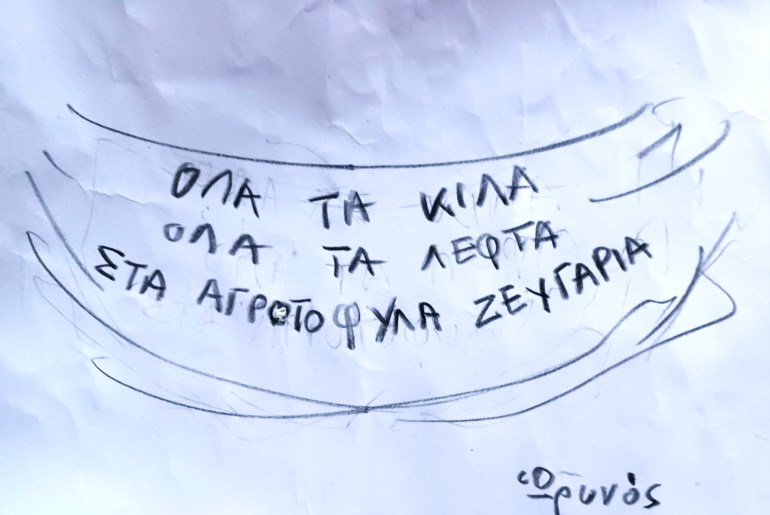 ΟΛΑ ΤΑ ΚΙΛΑ
ΟΛΑ ΤΑ ΛΕΦΤΑ
ΣΤΑ ΑΓΡΟΤΟΦΥΛΑ ΖΕΥΓΑΡΙΑ